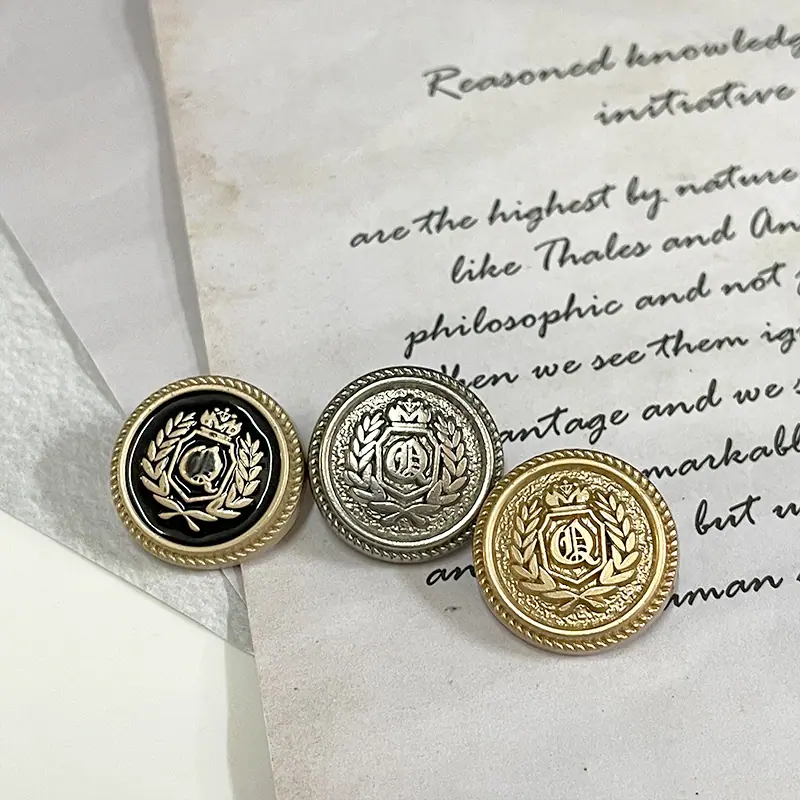 Reasoned knowledg
initiative
are the highest by nature
like Thales and An
philosophic and not
hen we see them ig
antage and we s
markabl
but u
an
uman
Q
Q
Q